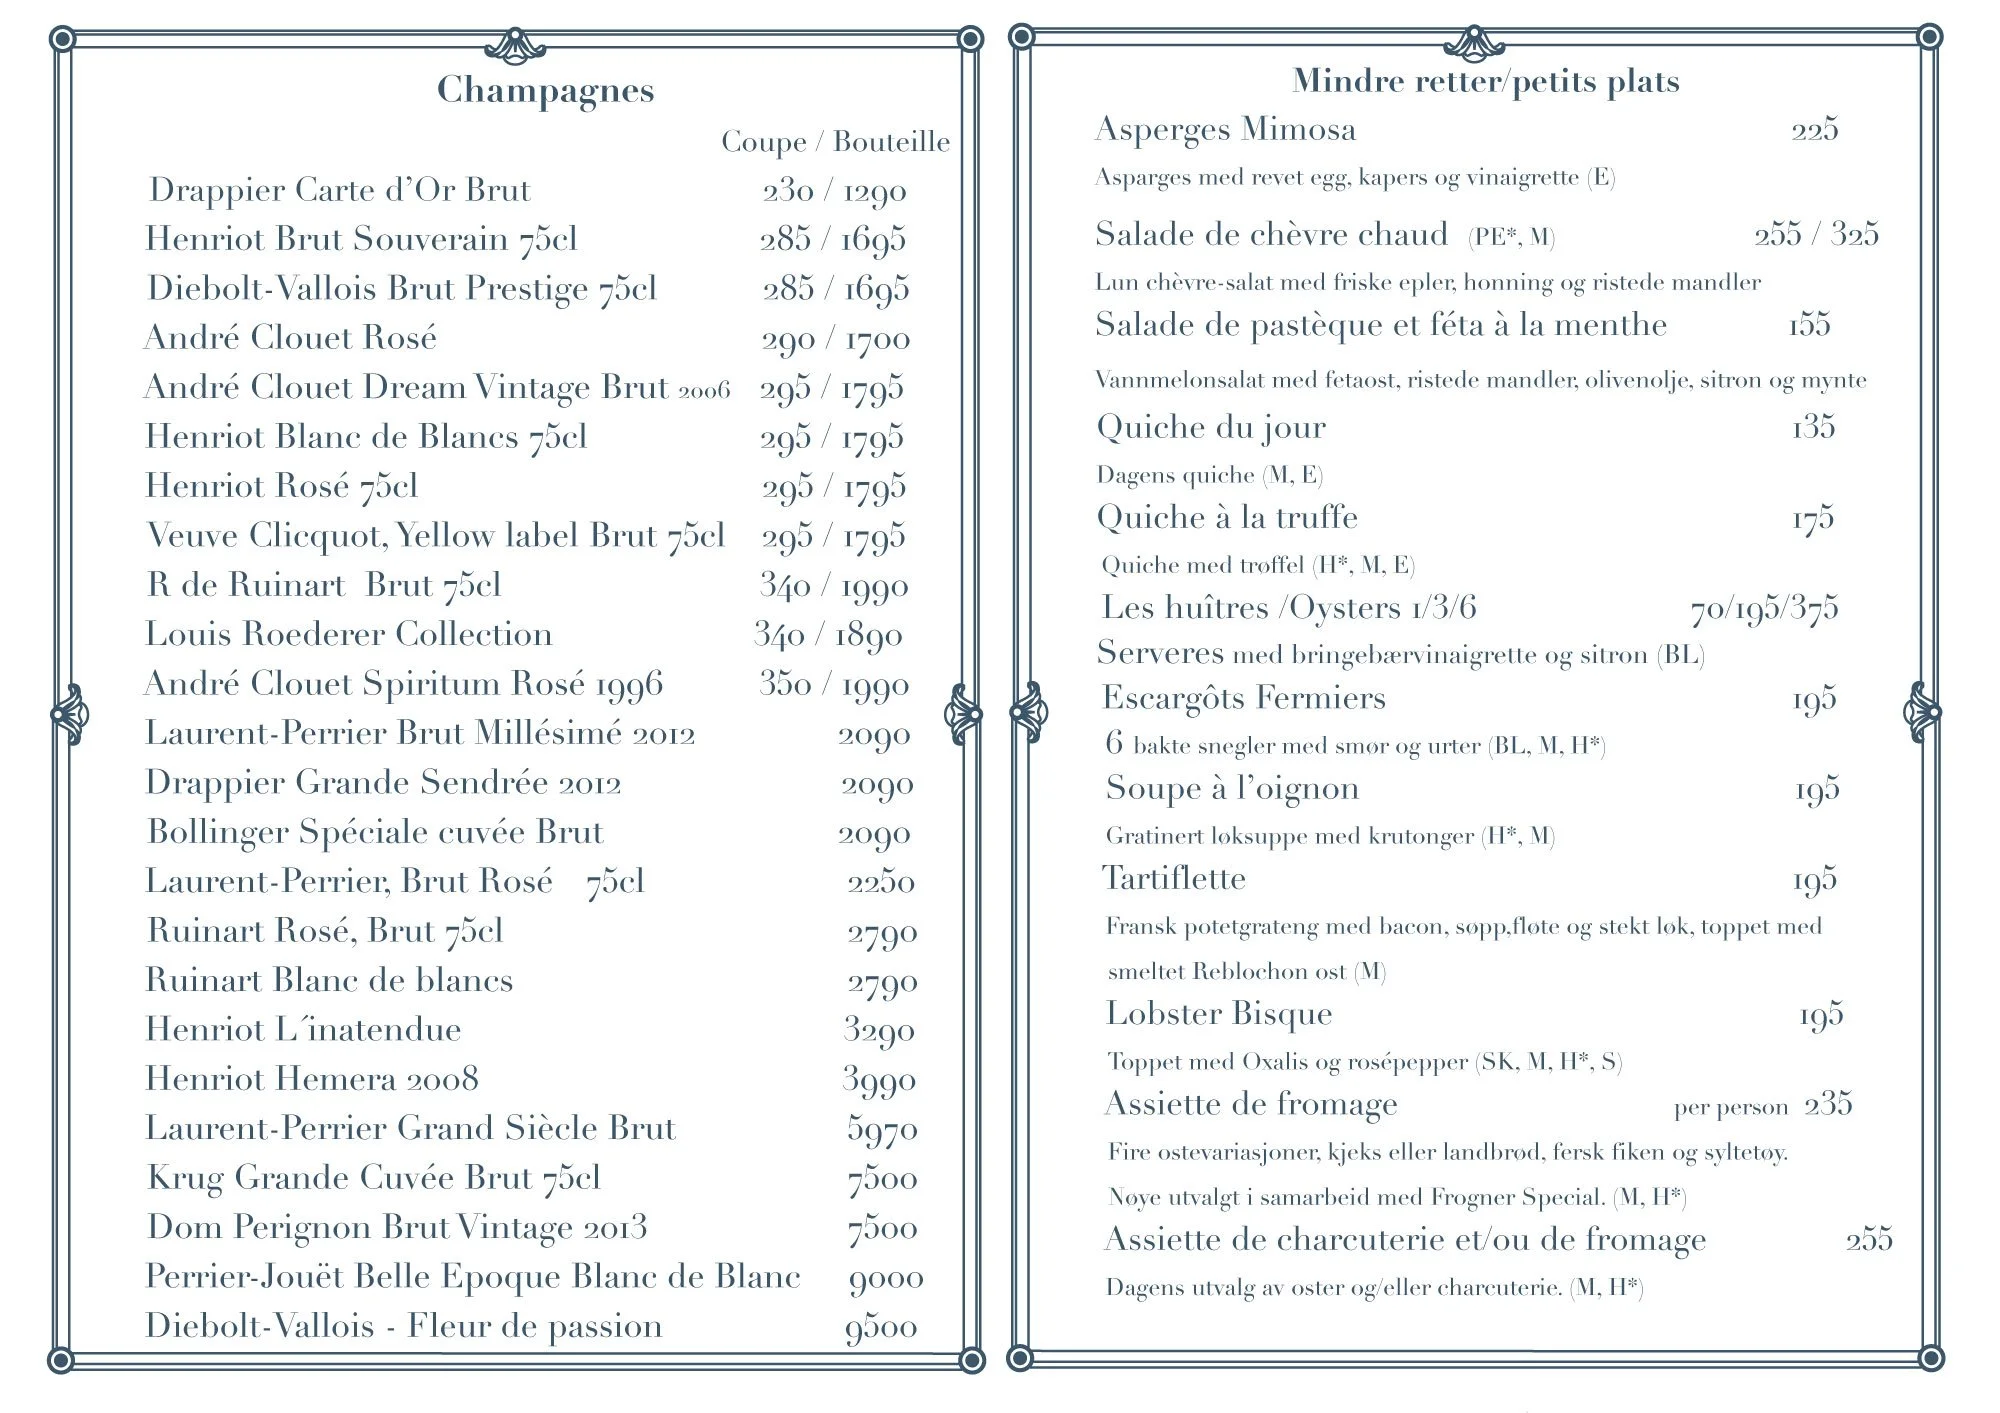 Champagnes
Coupe / Bouteille
Drappier Carte d’Or Brut 230 / 1290
Henriot Brut Souverain 75cl 285 / 1695
Diebolt-Vallois Brut Prestige 75cl 285 / 1695
André Clouet Rosé 290 / 1700
André Clouet Dream Vintage Brut 2006 295 / 1795
Henriot Blanc de Blancs 75cl 295 / 1795
Henriot Rosé 75cl 295 / 1795
Veuve Clicquot, Yellow label Brut 75cl 295 / 1795
R de Ruinart Brut 75cl 340 / 1990
Louis Roederer Collection 340 / 1890
André Clouet Spiritum Rosé 1996 350 / 1990
Laurent-Perrier Brut Millésimé 2012 2090
Drappier Grande Sendrée 2012 2090
Bollinger Spéciale cuvée Brut 2090
Laurent-Perrier, Brut Rosé 75cl 2250
Ruinart Rosé, Brut 75cl 2790
Ruinart Blanc de blancs 2790
Henriot L´inatendue 3290
Henriot Hemera 2008 3990
Laurent-Perrier Grand Siècle Brut 5970
Krug Grande Cuvée Brut 75cl 7500
Dom Perignon Brut Vintage 2013 7500
Perrier-Jouët Belle Epoque Blanc de Blanc 9000
Diebolt-Vallois - Fleur de passion 9500
Mindre retter/petits plats
Asperges Mimosa 225
Asparges med revet egg, kapers og vinaigrette (E)
Salade de chèvre chaud (PE*, M) 255 / 325
Lun chèvre-salat med friske epler, honning og ristede mandler
Salade de pastèque et féta à la menthe 155
Vannmelonsalat med fetaost, ristede mandler, olivenolje, sitron og mynte
Quiche du jour 135
Dagens quiche (M, E)
Quiche à la truffe 175
Quiche med trøffel (H*, M, E)
Les huîtres /Oysters 1/3/6 70/195/375
Serveres med bringebærvinaigrette og sitron (BL)
Escargôts Fermiers 195
6 bakte snegler med smør og urter (BL, M, H*)
Soupe à l’oignon 195
Gratinert løksuppe med krutonger (H*, M)
Tartiflette 195
Fransk potetgrateng med bacon, søpp,fløte og stekt løk, toppet med
smeltet Reblochon ost (M)
Lobster Bisque 195
Toppet med Oxalis og rosépepper (SK, M, H*, S)
Assiette de fromage per person 235
Fire ostevariasjoner, kjeks eller landbrød, fersk fiken og syltetøy.
Nøye utvalgt i samarbeid med Frogner Special. (M, H*)
Assiette de charcuterie et/ou de fromage 255
Dagens utvalg av oster og/eller charcuterie. (M, H*)